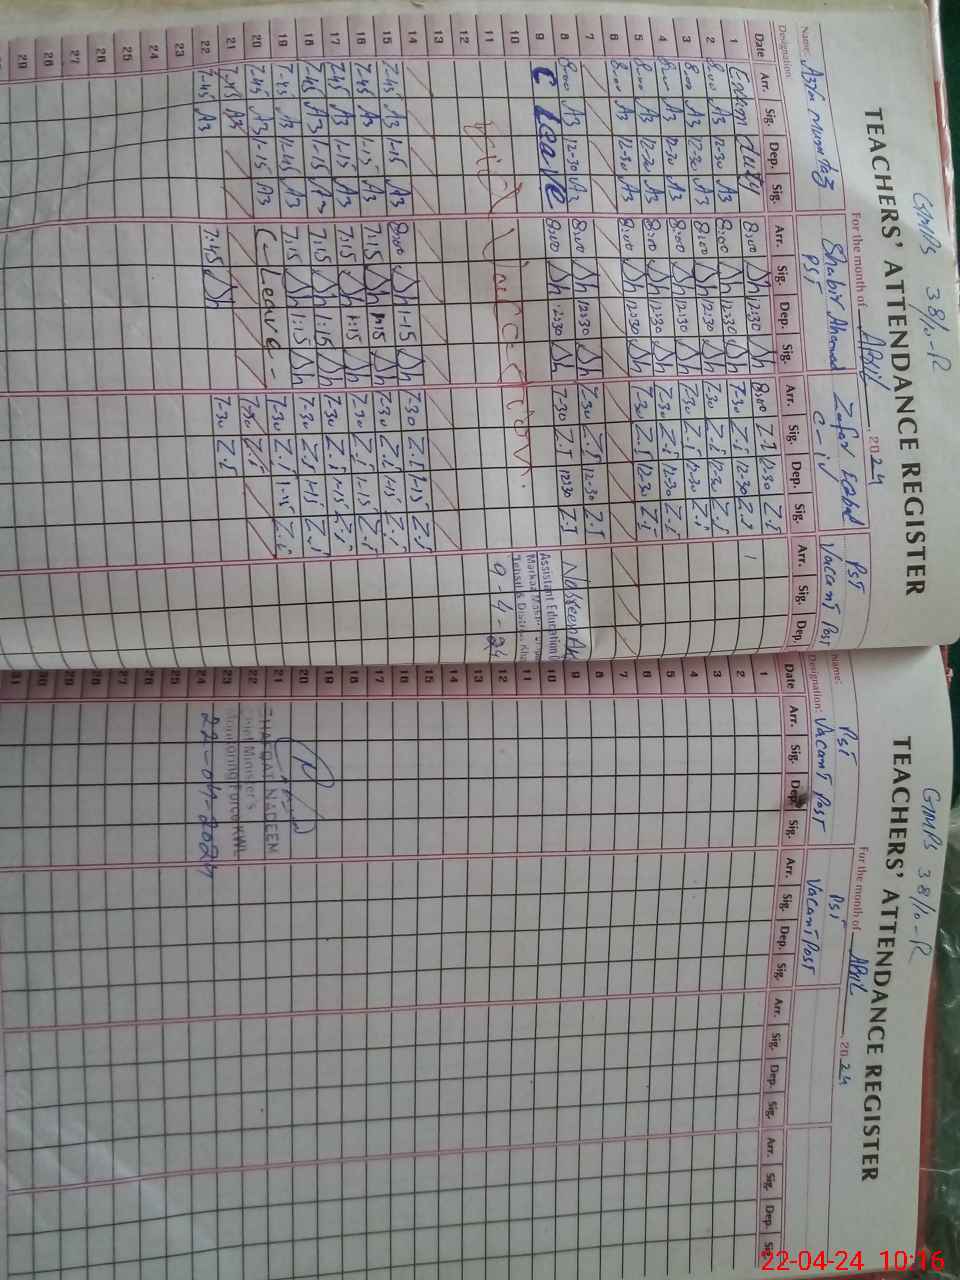 GMPS 38/10-R
TEACHERS' ATTENDANCE REGISTER
For the month of APRIL 2024
Name: Azra Mumtaz
Shabir Ahamad
Zafar Iqbal
PST
Designation
PST
Vaccant Post
Date Arr. Sig. Dep. Sig. Arr. Sig. Dep. Sig. Arr. Sig. Dep. Sig. Arr. Sig. Dep.
1 duty 8:00 Sh 12:30 Sh 8:00 Z.I 12:30 Z.I
2 8:00 A3 12-30 A3 8:00 Sh 12:30 Sh 7-30 Z.I 12-30 Z.I
3 8:00 A3 12-30 A3 8:00 Sh 12:30 Sh 7-30 Z.I 12-30 Z.I
4 8:00 A3 12-30 A3 8:00 Sh 12:30 Sh 7-30 Z.I 12-30 Z.I
5 8:00 A3 12-30 A3 8:00 Sh 12:30 Sh 7-30 Z.I 12-30 Z.I
6 8:00 A3 12-30 A3 8:00 Sh 12:30 Sh 7-30 Z.I 12-30 Z.I
7
8 8:00 A3 12-30 A3 8:00 Sh 12:30 Sh 7-30 Z.I 12-30 Z.I
9 C Leave 8:00 Sh 12:30 Sh 7-30 Z.I 12:30 Z.I
10
11
12
13
14
15 7-45 A3 1-15 A3 8:00 Sh 1-15 Sh 7-30 Z.I 1-15 Z.I
16 7-45 A3 1-15 A3 7:15 Sh 1:15 Sh 7-30 Z.I 1-15 Z.I
17 7-45 A3 1-15 A3 7:15 Sh 1:15 Sh 7-30 Z.I 1-15 Z.I
18 7-45 A3 1-15 A3 7:15 Sh 1:15 Sh 7-30 Z.I 1-15 Z.I
19 7-45 A3 11-45 A3 7:15 Sh 1:15 Sh 7-30 Z.I 1-15 Z.I
20 7-45 A3 1-15 A3 C-Leave- 7-30 Z.I
21 7-45 A3 7-30 Z.I
22 7-45 A3 7:45 Sh 7-30 Z.I
23
24
25
26
27
28
29
Eid Vaccation.
Assistant Education
9-4-24
GMPS 38/10-R
TEACHERS' ATTENDANCE REGISTER
For the month of APRIL 2024
Name: PST
PST
Designation: Vacant Post
Vacant Post
Date Arr. Sig. Dep. Sig. Arr. Sig. Dep. Sig. Arr. Sig. Dep. Sig. Arr. Sig. Dep. Sig.
1
2
3
4
5
6
7
8
9
10
11
12
13
14
15
16
17
18
19
20
21
22
23
24
25
26
27
28
29
30
31
NADEEM
Chief Minister's
Monitoring Force KWL
22-04-2024
22-04-24 10:16